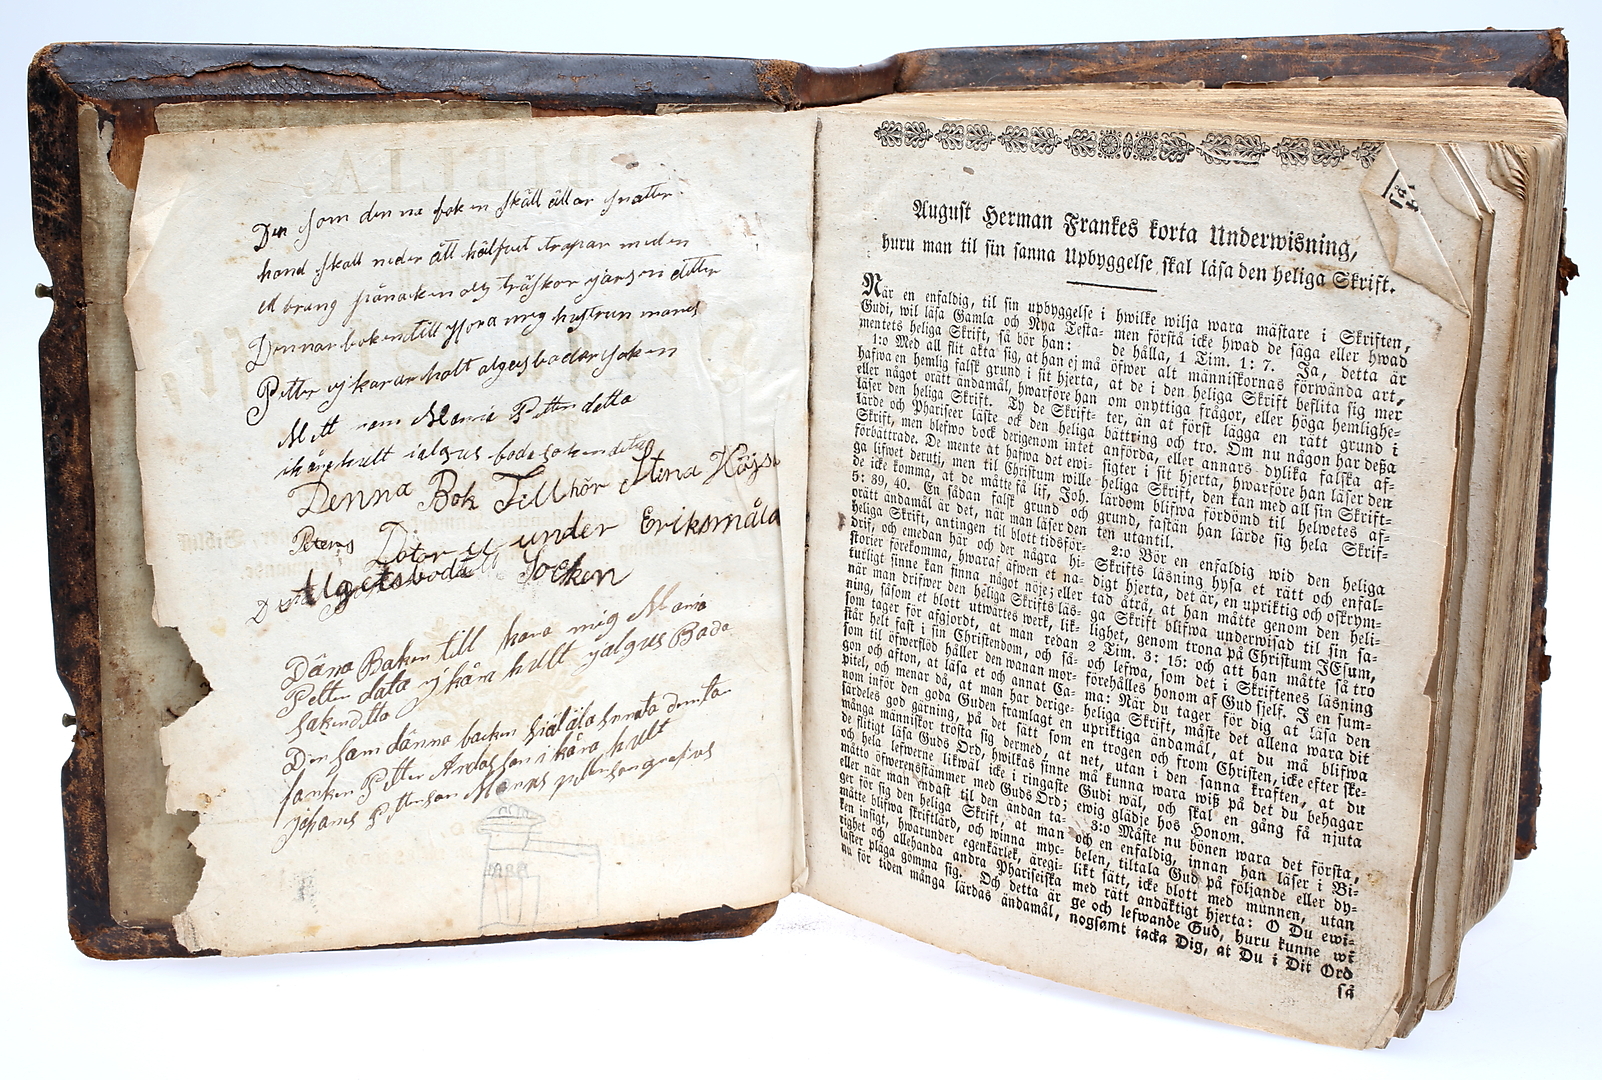 Den som den na boken skäll äller snatter
hand skall neder ått hälfvet trapar neden
Dennar boken till hora mig hustrun manes
Petter
Mitt nam Maria Petter datta
Denna Bok Tillhör Stina Kajsa
Peters Dotor under Eriksmåla
Algutsboda Socken
Däna Baken till hora mig Maria
Petter data i kåra hult yalgus Bada
sakendtta
Den sam dänna backen
Petter i kåra hult
August Herman Frankes korta Underwisning,
huru man til sin sanna Upbyggelse skal läsa den heliga Skrift.
När en enfaldig, til sin upbyggelse i
Gudi, wil läsa Gamla och Nya Testa-
mentets heliga Skrift, så bör han:
1:o Med all flit akta sig, at han ej må
hafwa en hemlig falsk grund i sit hjerta,
eller något orätt ändamål, hwarföre han
läser den heliga Skrift. Ty de Skrift-
lärde och Phariseer läste ock den heliga
Skrift, men blefwo dock derigenom intet
förbättrade. De mente at hafwa det ewi-
ga lifwet deruti, men til Christum wille
de icke komma, at de måtte få lif, Joh.
5: 39, 40. En sådan falsk grund och
orätt ändamål är det, när man läser den
heliga Skrift, antingen til blott tidsför-
drif, och emedan här och der några hi-
storier förekomma, hwaraf äfwen et na-
turligt sinne kan finna något nöje; eller
när man drifwer den heliga Skrifts läs-
ning, såsom et blott utwärtes werk, lik-
som tager för afgjordt, at man redan
står helt fast i sin Christendom, och så-
som til öfwerflöd håller den wanan mor-
gon och afton, at läsa et och annat Ca-
pitel, och menar då, at man har derige-
nom inför den goda Guden framlagt en
särdeles god gärning, på det sätt som
många människor trösta sig dermed, at
de flitigt läsa Guds Ord, hwilkas sinne
och hela lefwerne likwäl icke i ringaste
måtto öfwerensstämmer med Guds Ord;
eller när man endast til den ändan ta-
ger för sig den heliga Skrift, at man
måtte blifwa skriftlärd, och winna myc-
ken insigt, hwarunder egenkärlek, äregi-
righet och allehanda andra Phariseiska
laster pläga gömma sig. Och detta är
nu för tiden många lärdas ändamål,
hwilke wilja wara mästare i Skriften,
men förstå icke hwad de säga eller hwad
de hålla, 1 Tim. 1: 7. Ja, detta är
öfwer alt människornas förwända art,
at de i den heliga Skrift beflita sig mer
om onyttiga frågor, eller höga hemlighe-
ter, än at först lägga en rätt grund i
bättring och tro. Om nu någon har dessa
anförda, eller annars dylika falska af-
sigter i sit hjerta, hwarföre han läser den
heliga Skrift, den kan med all sin Skrift-
lärdom blifwa fördömd til helwetes af-
grund, fastän han lärde sig hela Skrif-
ten utantil.
2:o Bör en enfaldig wid den heliga
Skrifts läsning hysa et rätt och enfal-
digt hjerta, det är, en upriktig och oskrym-
tad åtrå, at han måtte genom den heli-
ga Skrift blifwa underwisad til sin sa-
lighet, genom trona på Christum JEsum,
2 Tim. 3: 15: och at han måtte så tro
och lefwa, som det i Skriftenes läsning
förehålles honom af Gud sjelf. I en sum-
ma: När du tager för dig at läsa den
heliga Skrift, måste det allena wara dit
upriktiga ändamål, at du må blifwa
en trogen och from Christen, icke efter ske-
net, utan i den sanna kraften, at du
må kunna wara wiß på det du behagar
Gudi wäl, och skal en gång få njuta
ewig glädje hos Honom.
3:o Måste nu bönen wara det första,
och en enfaldig, innan han läser i Bi-
belen, tiltala Gud på följande eller dy-
likt sätt, icke blott med munnen, utan
med rätt andäktigt hjerta: O Du ewi-
ge och lefwande Gud, huru kunne wi
nogsamt tacka Dig, at Du i Dit Ord
så